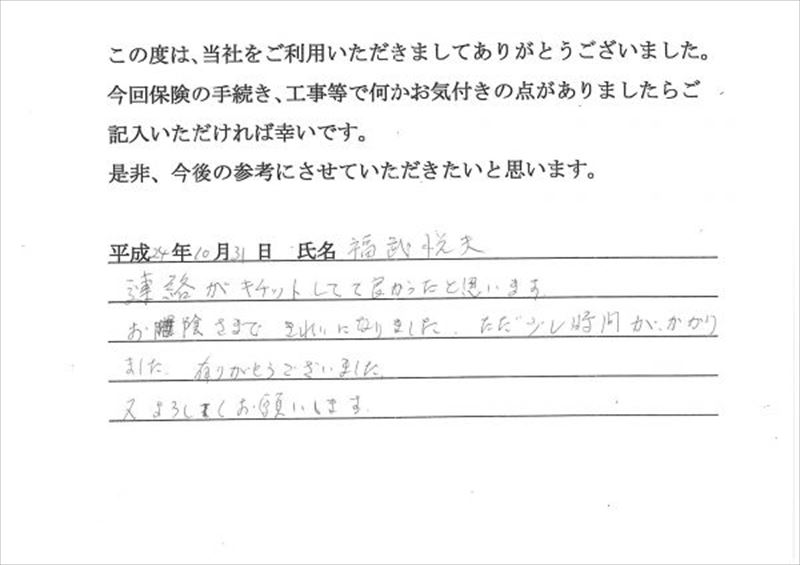 この度は、当社をご利用いただきましてありがとうございました。
今回保険の手続き、工事等で何かお気付きの点がありましたらご
記入いただければ幸いです。
是非、今後の参考にさせていただきたいと思います。
平成24年10月31日 氏名 福武悦夫
連絡がキチットしてて良かったと思います
お陰さまで きれいになりました。ただ少し時間が、かかり
ました。有りがとうございました。
又よろしくお願いします。